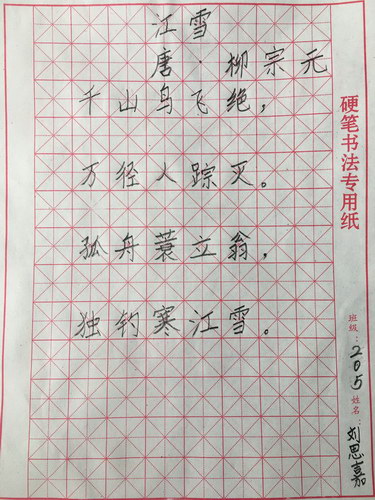 江雪
唐·柳宗元
千山鸟飞绝，
万径人踪灭。
孤舟蓑立翁，
独钓寒江雪。
硬笔书法专用纸
班级：205 姓名：刘思嘉